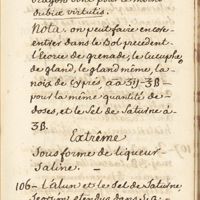 dragon sont pour le moins
dubiæ virtutis.
Nota, on peut faire encore
entrer dans le Bol precedent
l'Ecorce de grenade, le cutupha,
de gland, le gland même, la
noix de cyprès, aa
pour la même quantité de
doses, et le Sel de Saturne à
3B.
Extrême
Sous forme de liqueur
Saline. —
106 — L'alun et le Sel de Saturne